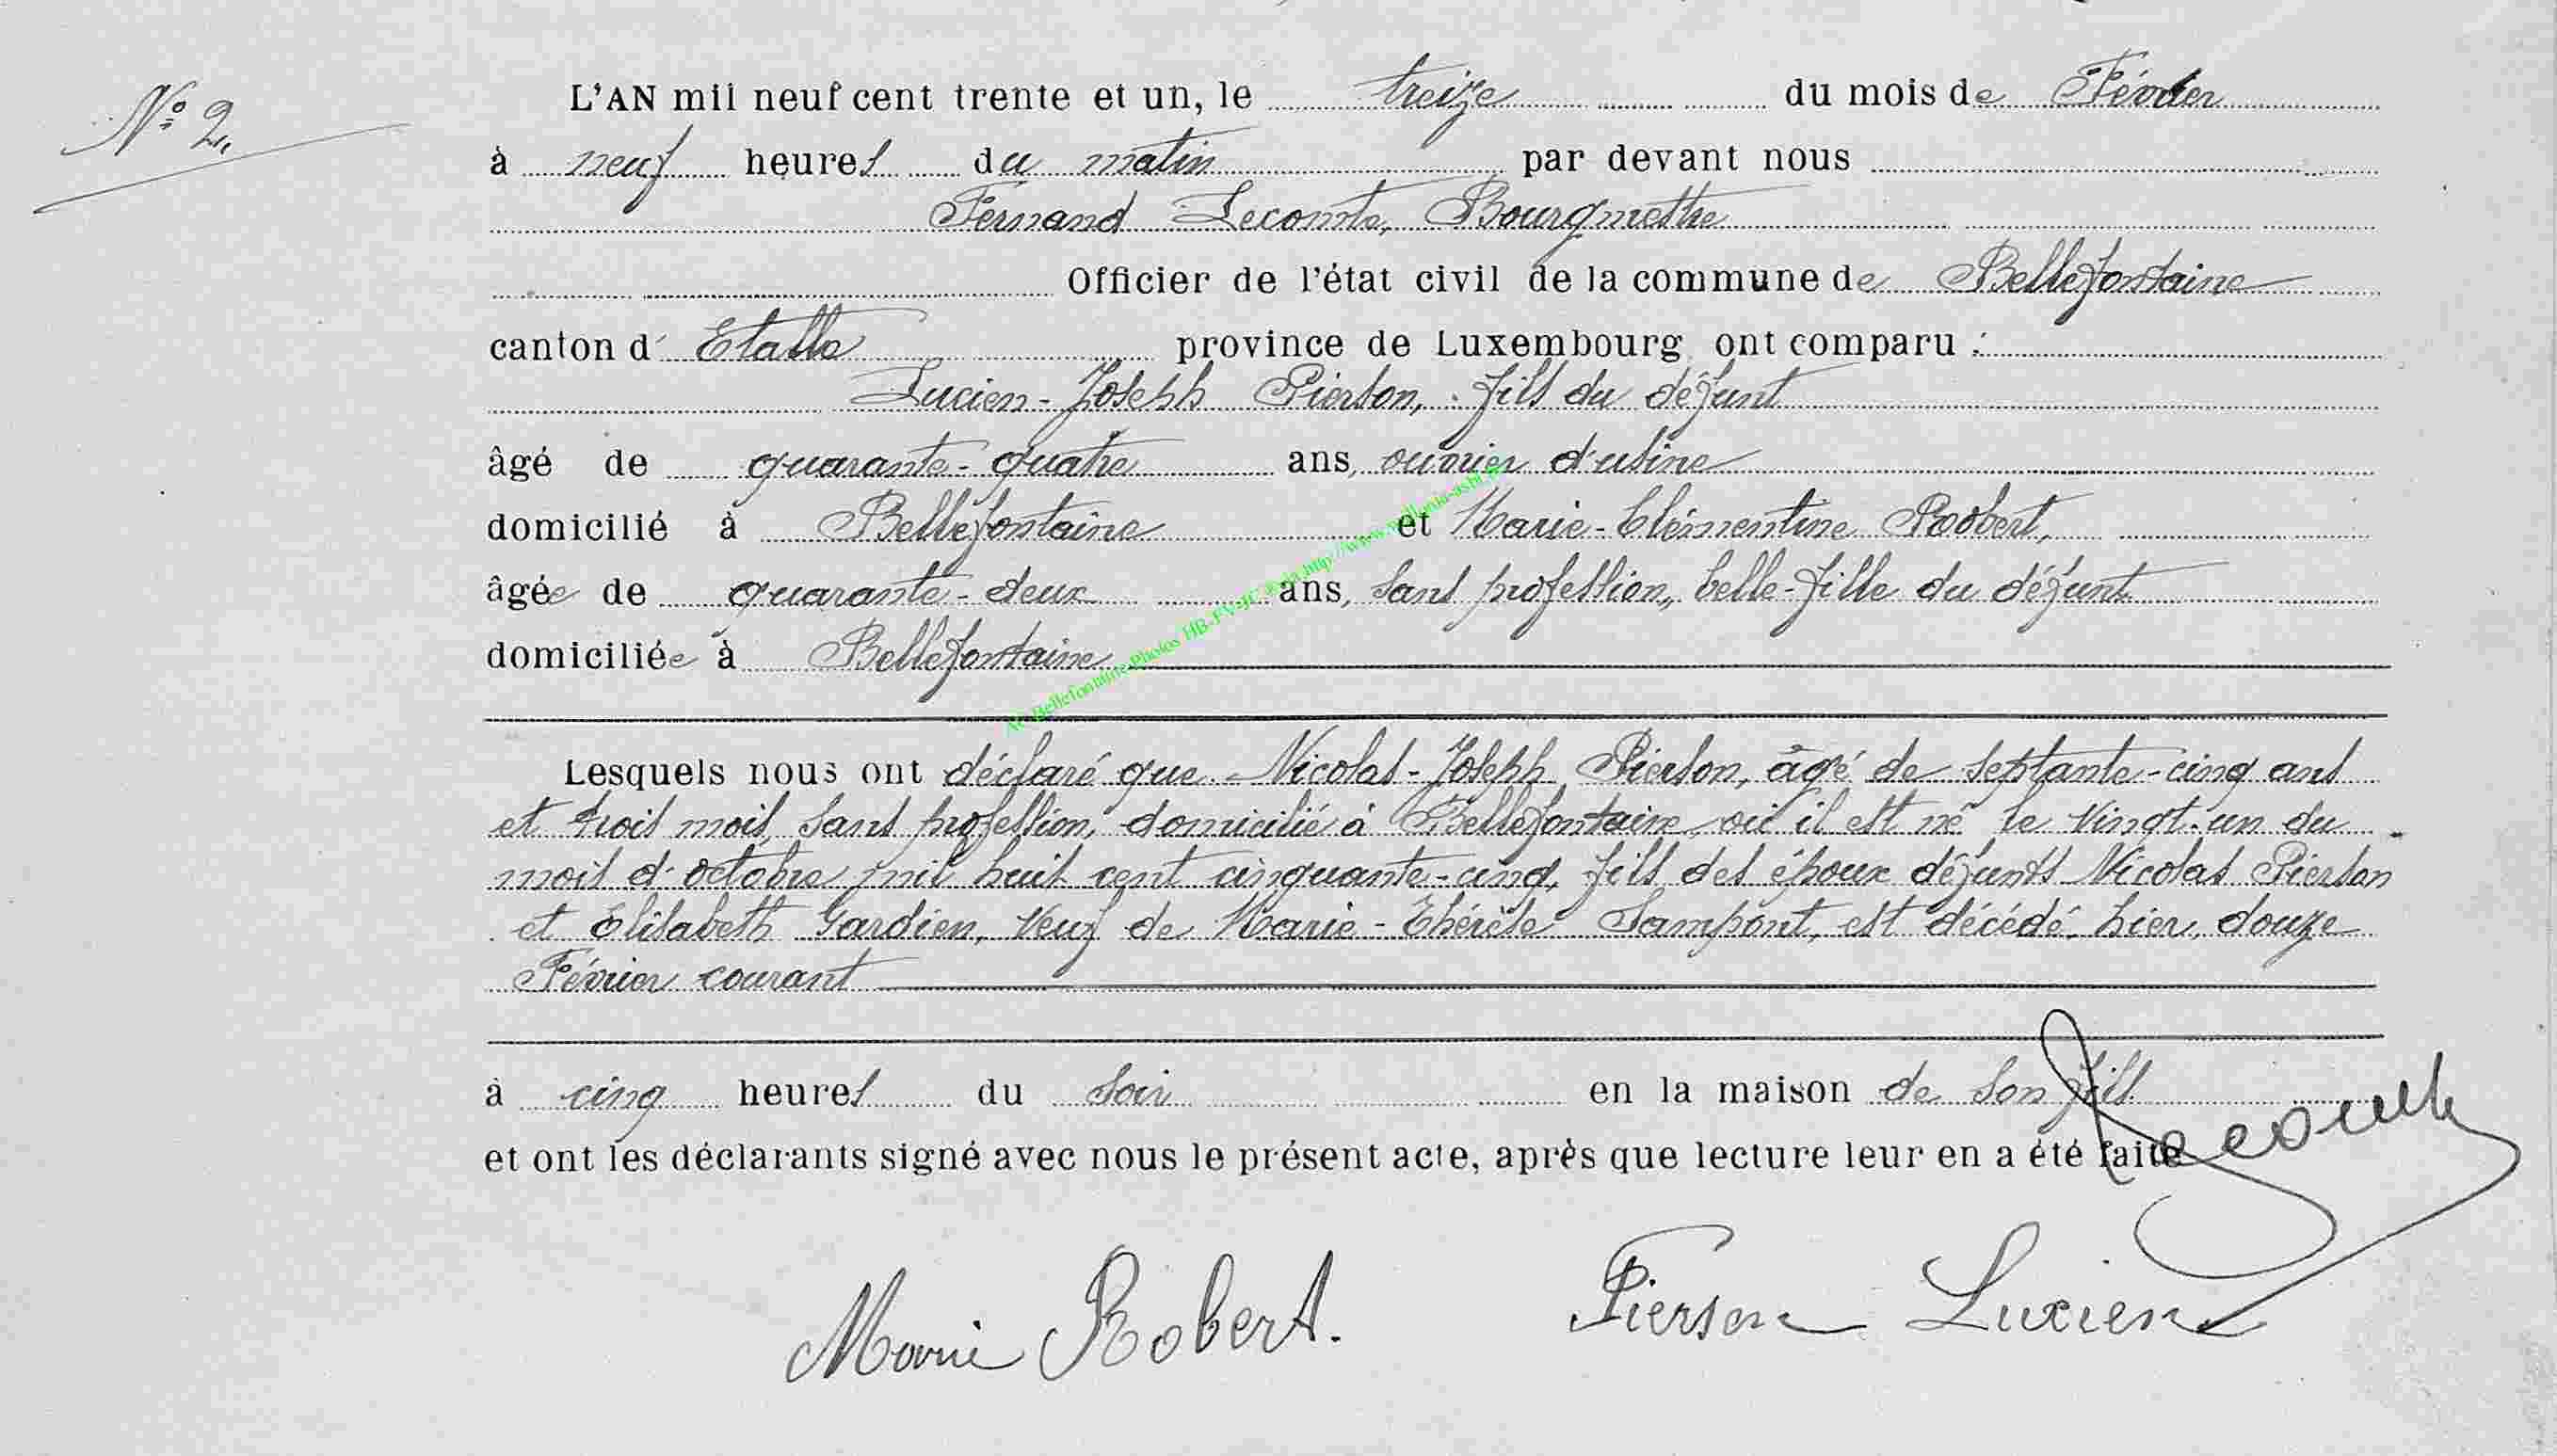 N° 2.
L'AN mil neuf cent trente et un, le treize du mois de Février
à neuf heures du matin par devant nous
Fernand Lecomte, Bourgmestre
Officier de l'état civil de la commune de Bellefontaine
canton d' Etalle province de Luxembourg ont comparu :
Lucien-Joseph Pierson, fils du défunt
âgé de quarante-quatre ans, ouvrier d'usine
domicilié à Bellefontaine et Marie-Clémentine Robert,
âgée de quarante-deux ans, sans profession, belle-fille du défunt
domiciliée à Bellefontaine
Lesquels nous ont déclaré que Nicolas-Joseph Pierson, âgé de septante-cinq ans
et trois mois, sans profession, domicilié à Bellefontaine où il est né le vingt-un du
mois d'octobre mil huit cent cinquante-cinq, fils des époux défunts Nicolas Pierson
et Elisabeth Gardien, veuf de Marie-Thérèse Sampont, est décédé, hier, douze
Février courant
à cinq heures du soir en la maison de son fils
et ont les déclarants signé avec nous le présent acte, après que lecture leur en a été faite
Lecomte
Marie Robert.
Pierson Lucien
Bellefontaine Photos